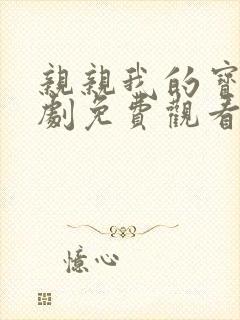 親親我的寶
劇免費觀看
憶心